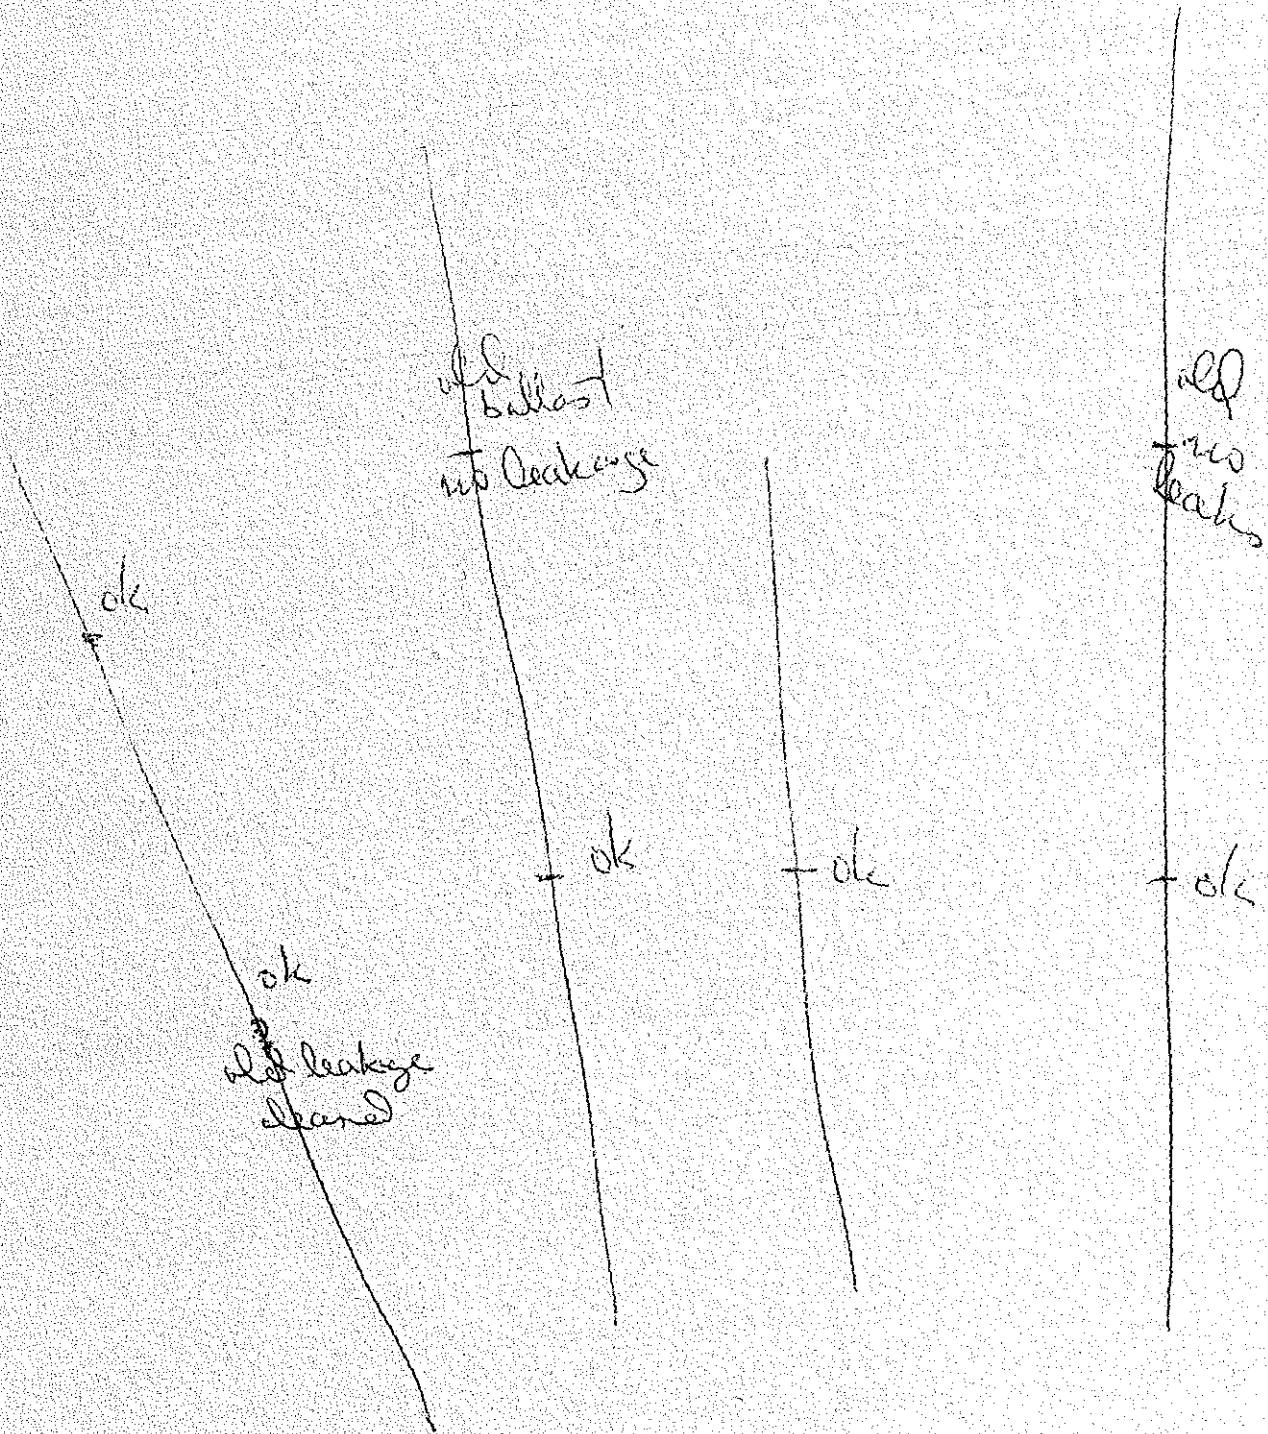 old
ballast
no leakage
old
no
leaks
ok
ok
ok
ok
ok
old leakage
cleaned